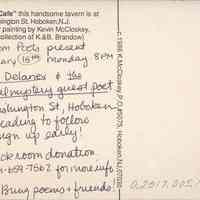 Cafe" this handsome tavern is at
ington St. Hoboken, N.J.
painting by Kevin McCloskey,
ollection of K.&B. Brandow)
om Poets present
ary 16th monday 8PM
Delaney & the
mystery guest poet
ashington St, Hoboken
eading to follow
ign up early!
ck room donation
-659-7562 for more info
Bring poems + friends!
c.1986 K.McCloskey, P.O.#5075, Hoboken, NJ, 07030